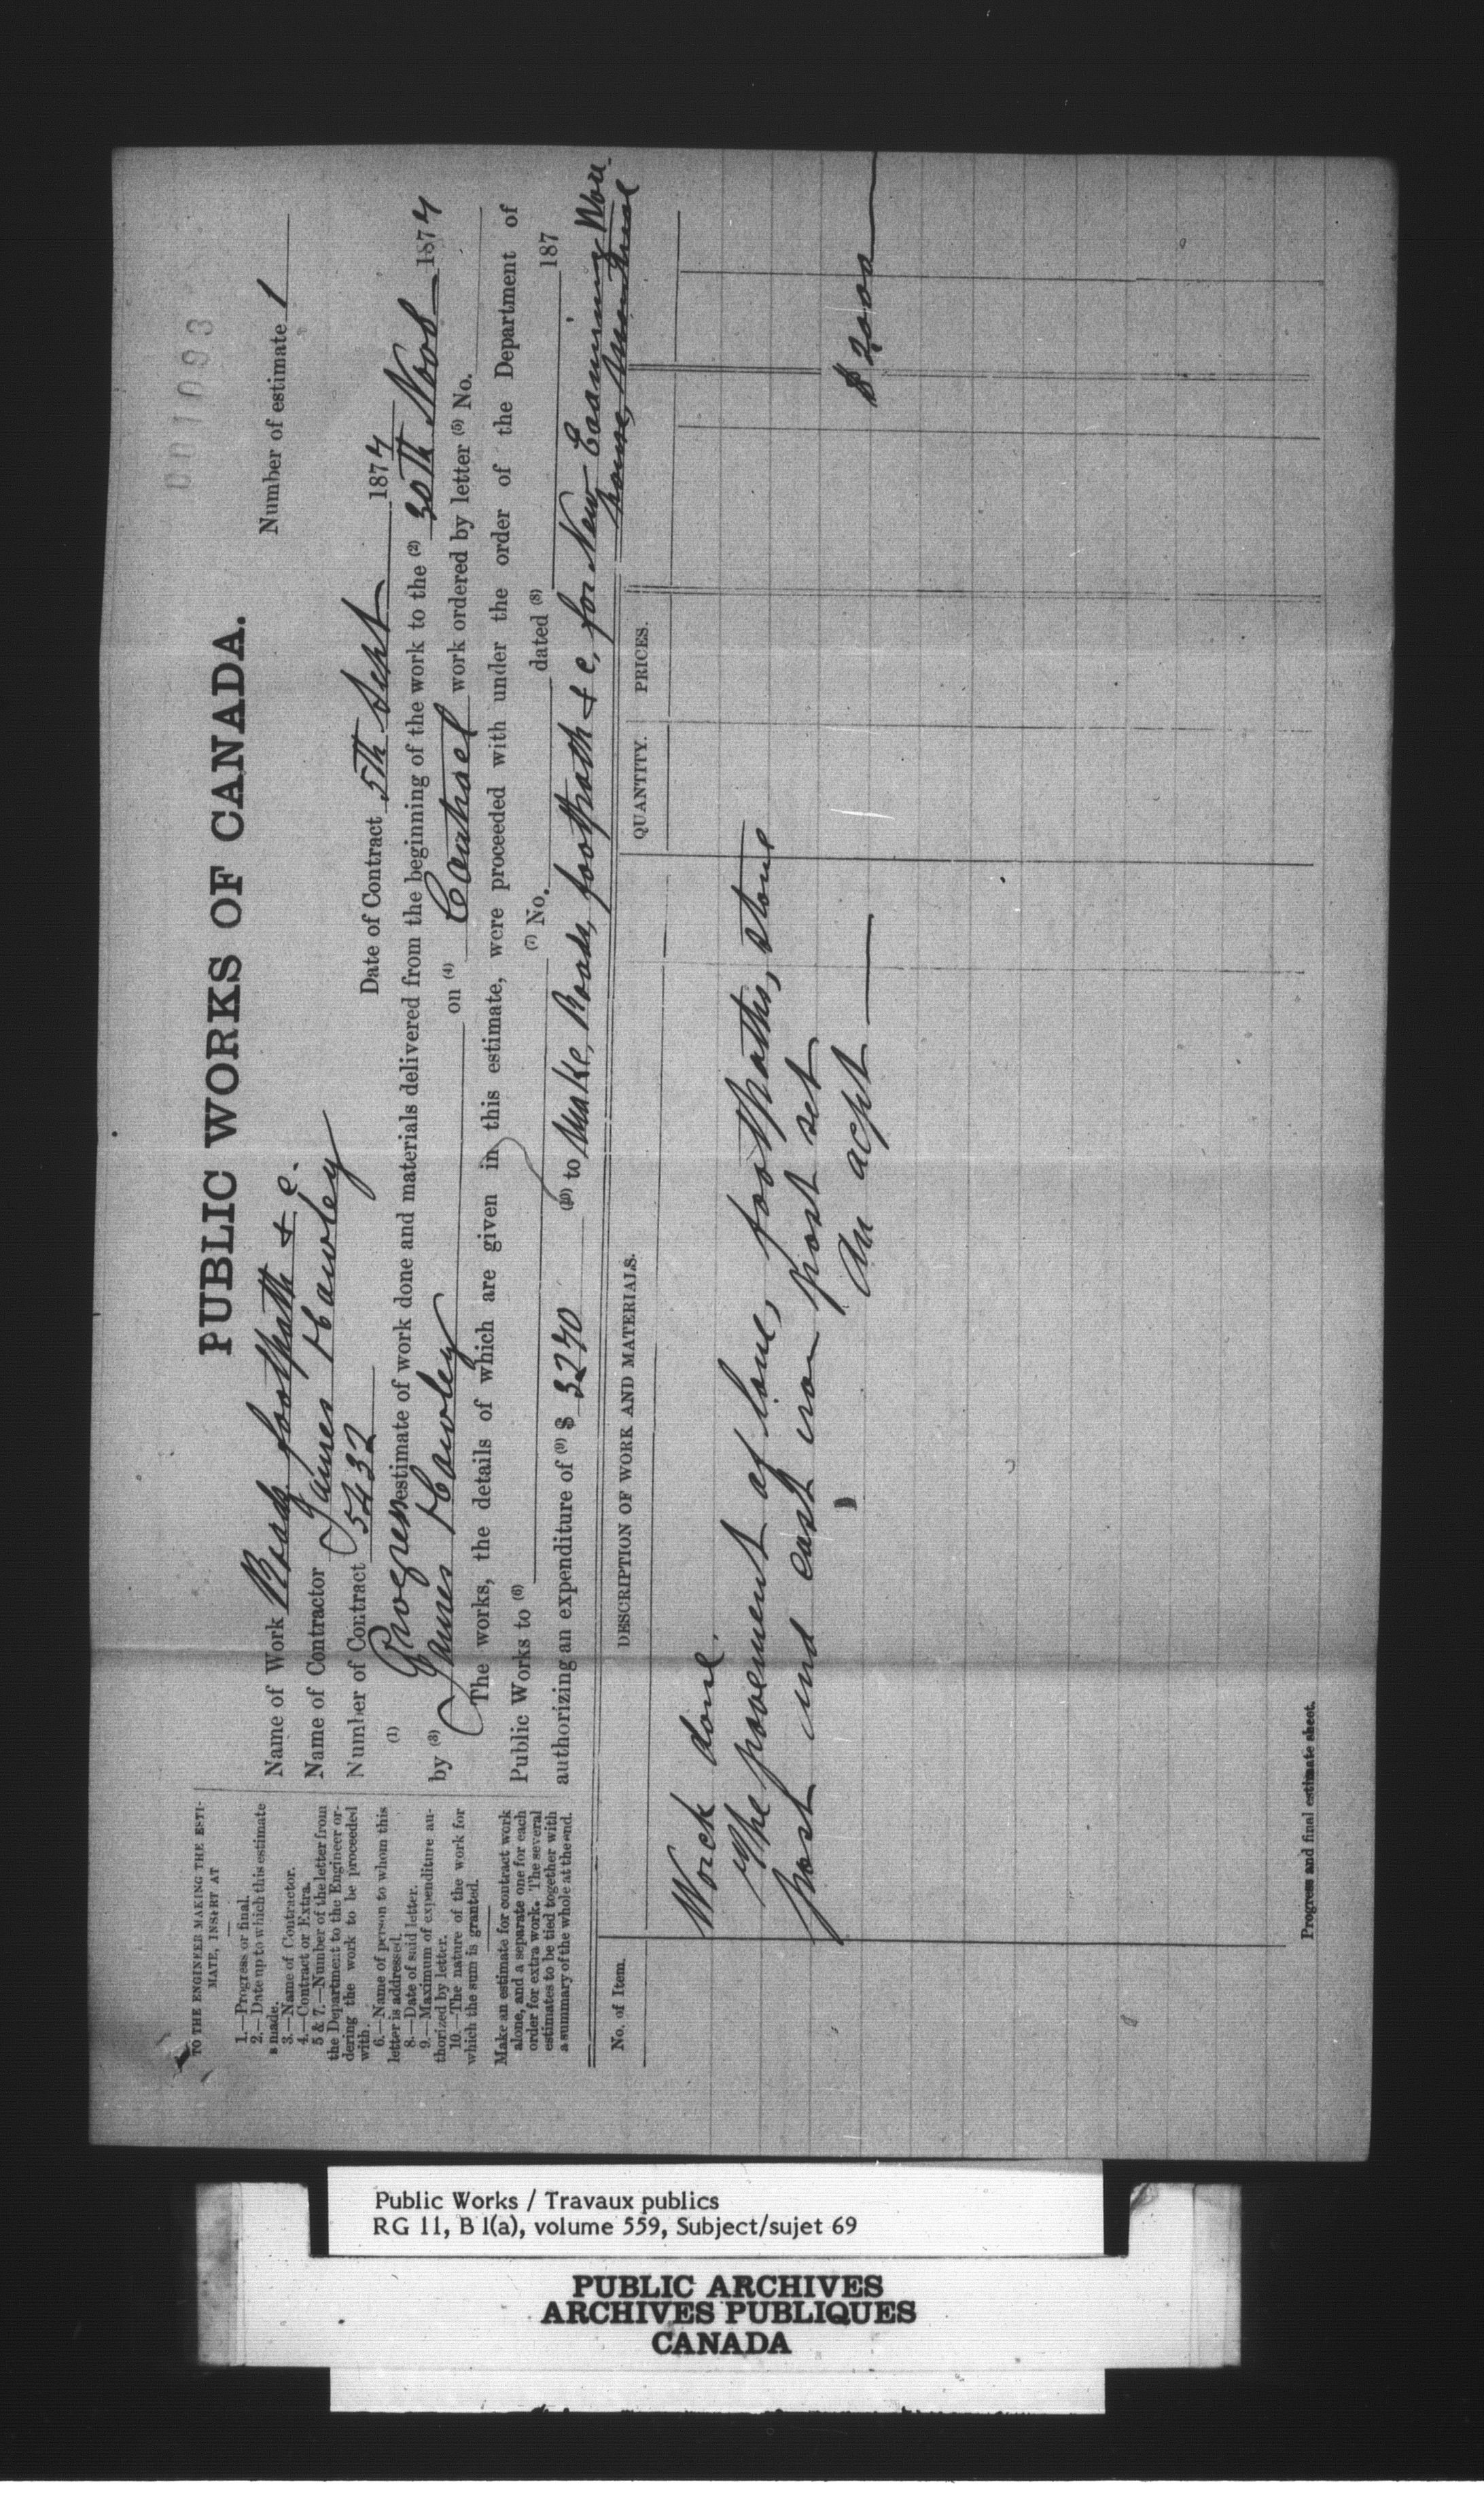 001093
PUBLIC WORKS OF CANADA.
Number of estimate 1
Name of Work Roads footpath & c.
Name of Contractor James Hawley
Date of Contract 5th Sept 1874
Number of Contract 5432
(1) Progress estimate of work done and materials delivered from the beginning of the work to the (2) 30th Novb 1874
by (3) James Hawley on (4) Contract work ordered by letter (5) No.
The works, the details of which are given in this estimate, were proceeded with under the order of the Department of
Public Works to (6) (7) No. dated (8) 187
authorizing an expenditure of (9) $ 3270 (10) to Make, Roads, footpath & c, for New Examining Wou-
house, Montreal
TO THE ENGINEER MAKING THE ESTI-
MATE, INSERT AT
1.—Progress or final.
2.—Date up to which this estimate
s made.
3.—Name of Contractor.
4.—Contract or Extra.
5 & 7.—Number of the letter from
the Department to the Engineer or-
dering the work to be proceeded
with.
6.—Name of person to whom this
letter is addressed.
8.—Date of said letter.
9.—Maximum of expenditure au-
thorized by letter.
10.—The nature of the work for
which the sum is granted.
Make an estimate for contract work
alone, and a separate one for each
order for extra work. The several
estimates to be tied together with
a summary of the whole at the end.
No. of Item. DESCRIPTION OF WORK AND MATERIALS. QUANTITY. PRICES.
Work done.
The pavement of lane, footpaths, stone
post and cast iron post set
An acpt $2,000
Progress and final estimate sheet.
Public Works / Travaux publics
RG 11, B 1(a), volume 559, Subject/sujet 69
PUBLIC ARCHIVES
ARCHIVES PUBLIQUES
CANADA